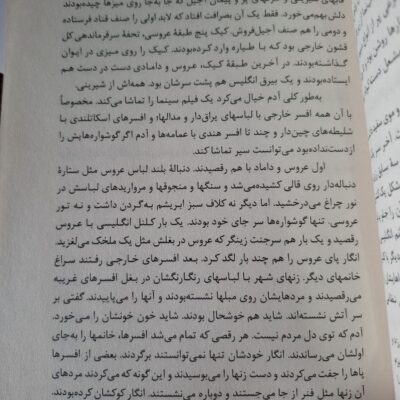 قابهای شیرینی و
و لیمای آجیل که جا به جا روی میزها چیده‌بودند
دلش بهم‌می‌خورد. فقط یک آن بصرافت افتاد که لابد اولی را صنف قناد فرستاده
و دومی را هم صنف آجیل‌فروش. کیک پنج طبقه عروس، تحفهٔ سرفرماندهی کل
قشون خارجی بود کـه بـا طیاره وارد کرده‌بودند. کیک را روی میزی در ایوان
گذاشته‌بودند. در آخرین طبقهٔ کیک، عروس و دامادی دست در دست هم
ایستاده‌بودند و یک بیرق انگلیس هم پشت سرشان بود. همه‌اش از شیرینی.
به‌طور کلی آدم خیال می‌کرد یک فیلم سینما را تماشا می‌کند. مخصوصاً
با آن همه افسر خارجی با لباسهای یراق‌دار و مدالها؛ و افسرهای اسکاتلندی با
شلیطه‌های چین‌دار و چند تا افسر هندی با عمامه‌ها و آدم اگر گوشواره‌هایش را
ازدست‌نداده‌بود می‌توانست سیر تماشا کند.
اول عروس و داماد با هم رقصیدند. دنبالهٔ بلند لباس عروس مثل ستارهٔ
دنباله‌دار روی قالی کشیده‌می‌شد و سنگها و منجوقها و مرواریدهای لباسش در
نور چراغ می‌درخشید. اما دیگر نه کلاف سبز ابریشم به‌گردن داشت و نه تور
عروسی. تنها گوشواره‌ها سر جای خود بودند. یک بار کلنل انگلیسی با عروس
رقصید و یک بار هم سرجنت زینگر که عروس در بغلش مثل یک ملخک می‌لغزید.
انگار پای عروس را هم چند بار لگد کرد. بعد افسرهای خارجی رفتند سراغ
خانمهای دیگر. زنهای شهر با لباسهای رنگارنگشان در بغل افسرهای غریبه
می‌رقصیدند و مردهایشان روی مبلها نشسته‌بودند و آنها را می‌پاییدند. گفتی بر
سر آتش نشسته‌اند. شاید هم خوشحال بودند. شاید خون خونشان را می‌خورد.
آدم که توی دل مردم نیست. هر رقصی که تمام می‌شد افسرها، خانمها را به‌جای
اولشان می‌رساندند. انگار خودشان تنها نمی‌توانستند برگردند. بعضی از افسرها
پاها را جفت می‌کردند و دست زنها را می‌بوسیدند و این گونه که می‌کردند مردهای
آن زنها مثل فنر از جا می‌جستند و دوباره می‌نشستند. انگار کوکشان کرده‌بودند.